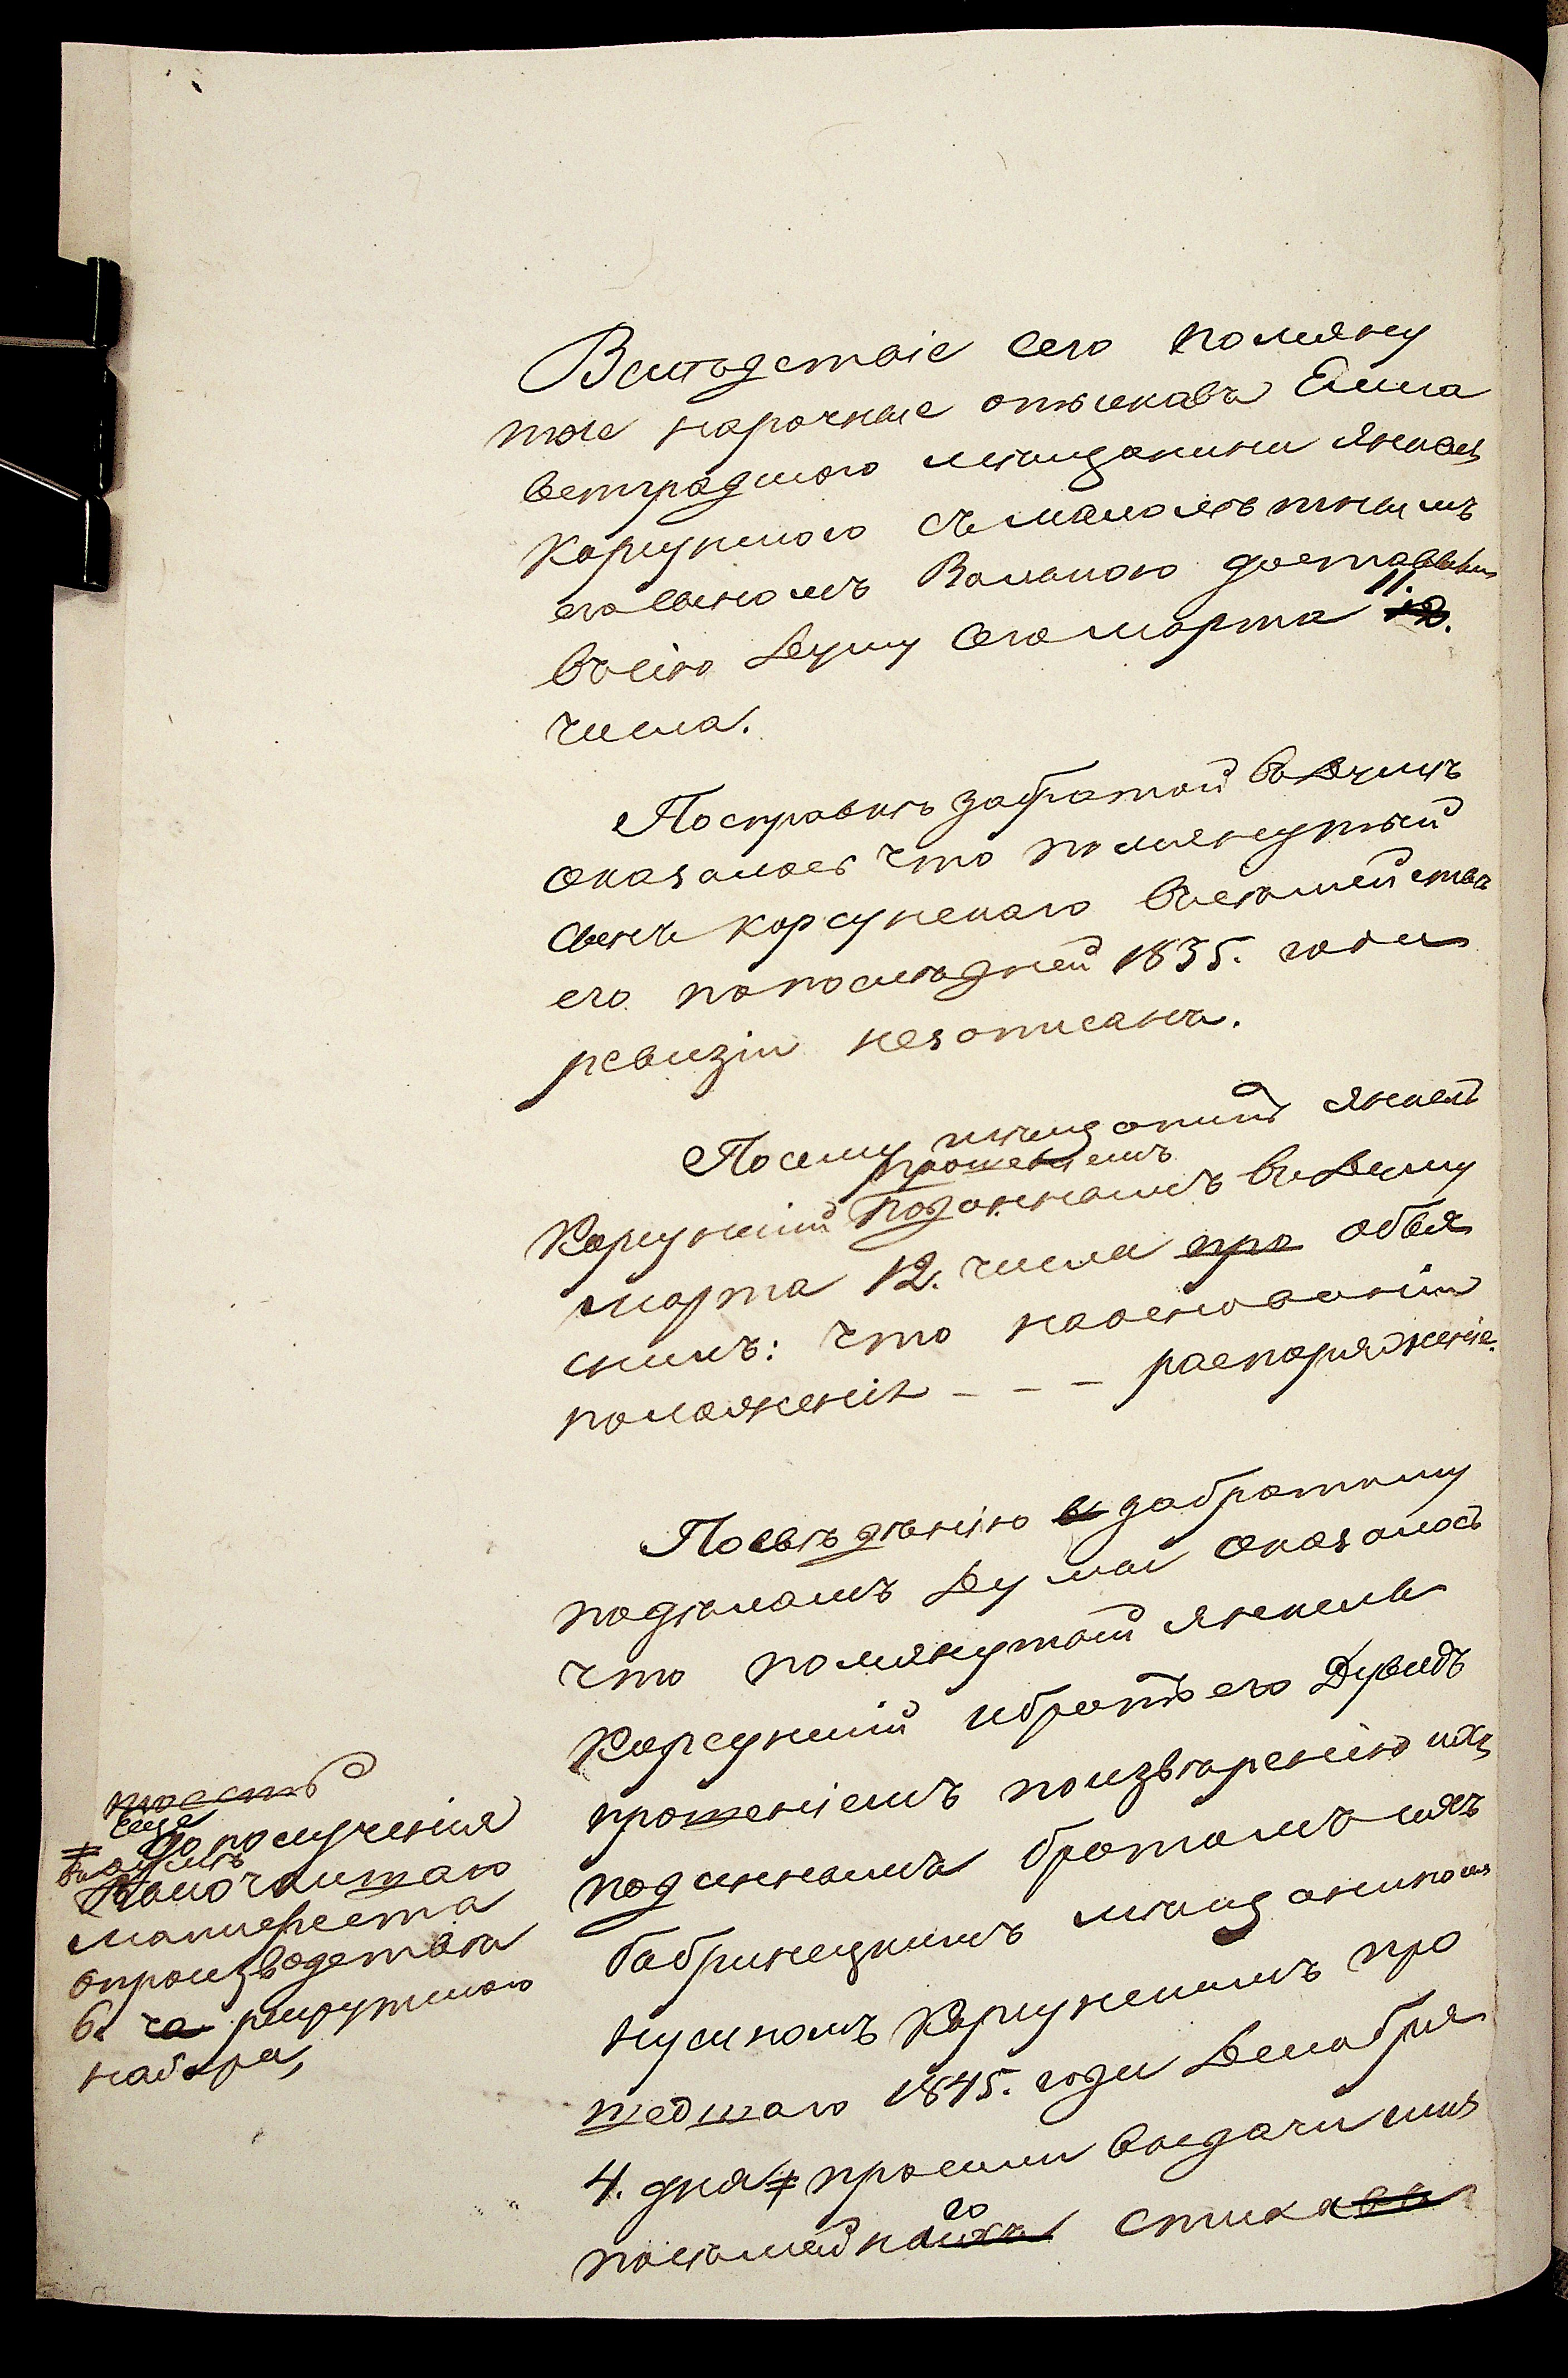 Вслѣдствіе сего помяну
тые нарочные отыскавъ Елиса
ветградского мѣщанина Янкеля
Корсунского съ малолѣтнымъ
его сыномъ Волькою доставили
въ сію Думу сего марта 11. 12.
числа.
По справкѣ забратой въ Думѣ
оказалось что помянутый
сынъ корсунскаго въ семействѣ
его по послѣдней 1835. года
ревизіи незаписанъ.
Посему мѣщанинъ Янкель
прошеніемъ
Корсунскій поданнымъ въ Думу
марта 12. числа про объя
снилъ: что наоснованіи
положенія - - - распоряженіе.
Посвѣдѣнію в забратому
подѣламъ Думы оказалось
что помянутый Янкель
Корсунскій и братъ его Дувидъ
прошеніемъ поизвѣренію ихъ
поданнымъ братомъ ихъ
бобринецкимъ мѣщаниномъ
Нусиномъ Корсунскимъ про
шедшаго 1845. года Декабря
4. дня ≠ просили выдачи имъ
посемейнаго ихъ списка въ
тоесть
еще
≠ до полученія
въ думѣ
Высочайшаго
манифеста
опроизводствѣ
6. го рекрутского
набора,